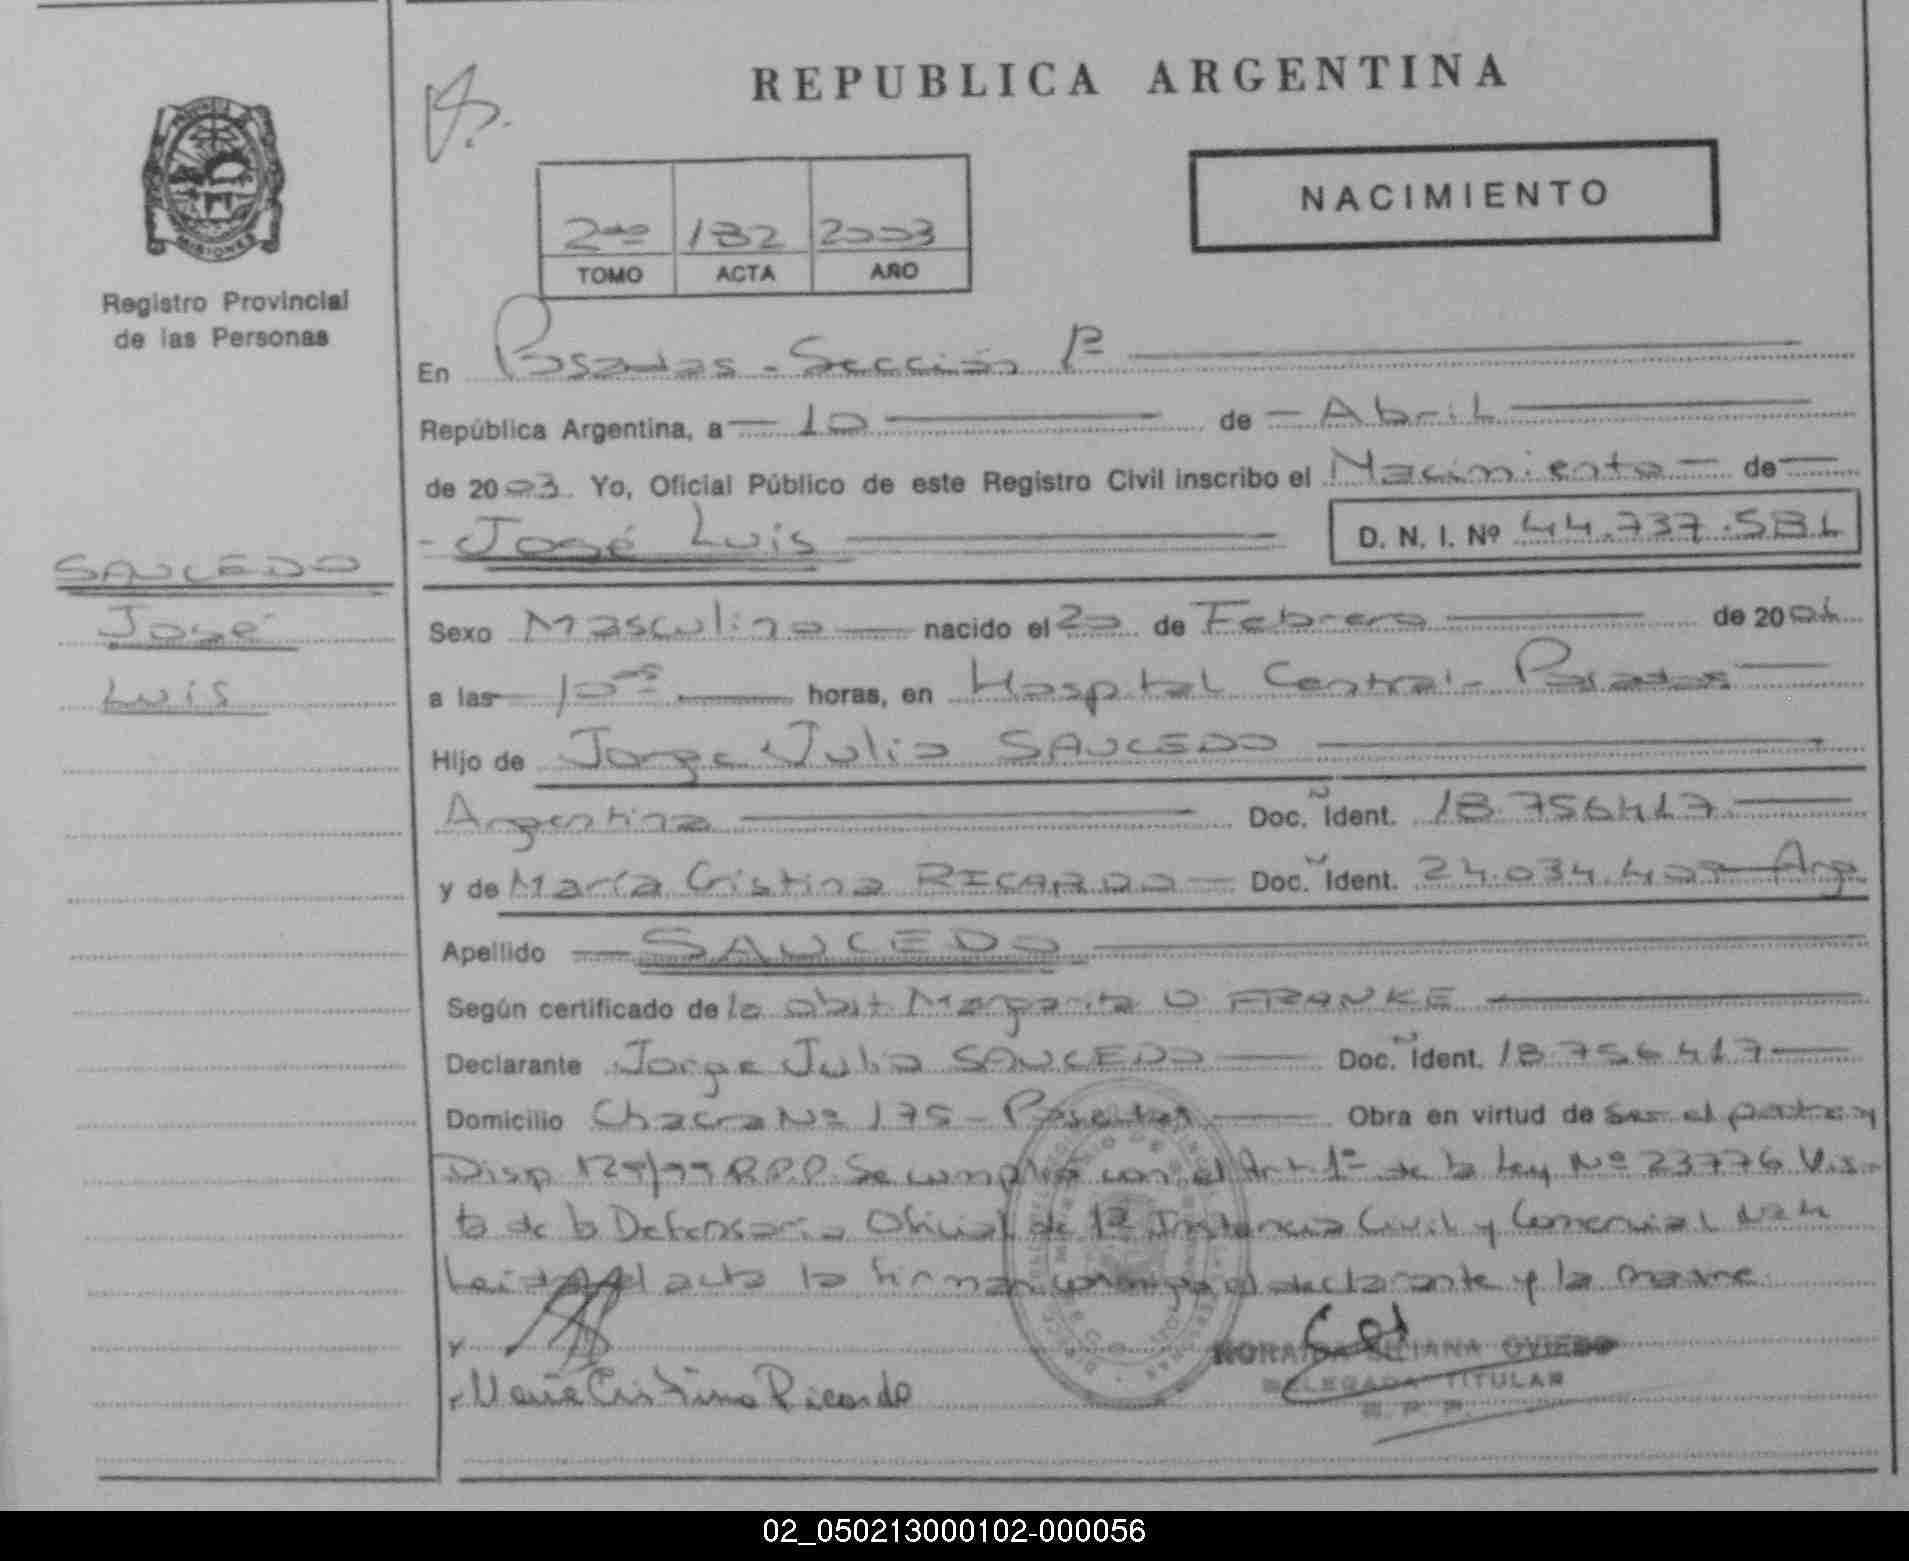 REPUBLICA ARGENTINA
NACIMIENTO
2do 182 2003
TOMO ACTA AÑO
MISIONES
Registro Provincial
de las Personas
En Posadas - Sección 1ª
República Argentina, a 10 de Abril
de 2003. Yo, Oficial Público de este Registro Civil inscribo el Nacimiento de
José Luis D. N. I. Nº 44.737.581
SAUCEDO
José
Luis
Sexo Masculino nacido el 20 de Febrero de 2001
a las 10 horas, en Hospital Central - Posadas
Hijo de Jorge Julio SAUCEDO
Argentina Doc. Ident. 18.756417
y de María Cristina RICARDO Doc. Ident. 24.034.409 Arg
Apellido SAUCEDO
Según certificado de la obst Margarita O FRANKE
Declarante Jorge Julio SAUCEDO Doc. Ident. 18.756417
Domicilio Chacra Nº 175 - Posadas Obra en virtud de ser el padre y
Disp 129/99 R.P.P. Se cumplió con el Art 1º de la Ley Nº 23776 Vis-
ta de la Defensoria Oficial de 1ª Instancia Civil y Comercial
Leida el acta la firman conmigo el declarante y la madre
María Cristina Ricardo
LILIANA OVIEDO
DELEGADA TITULAR
R. P. P.
02_050213000102-000056